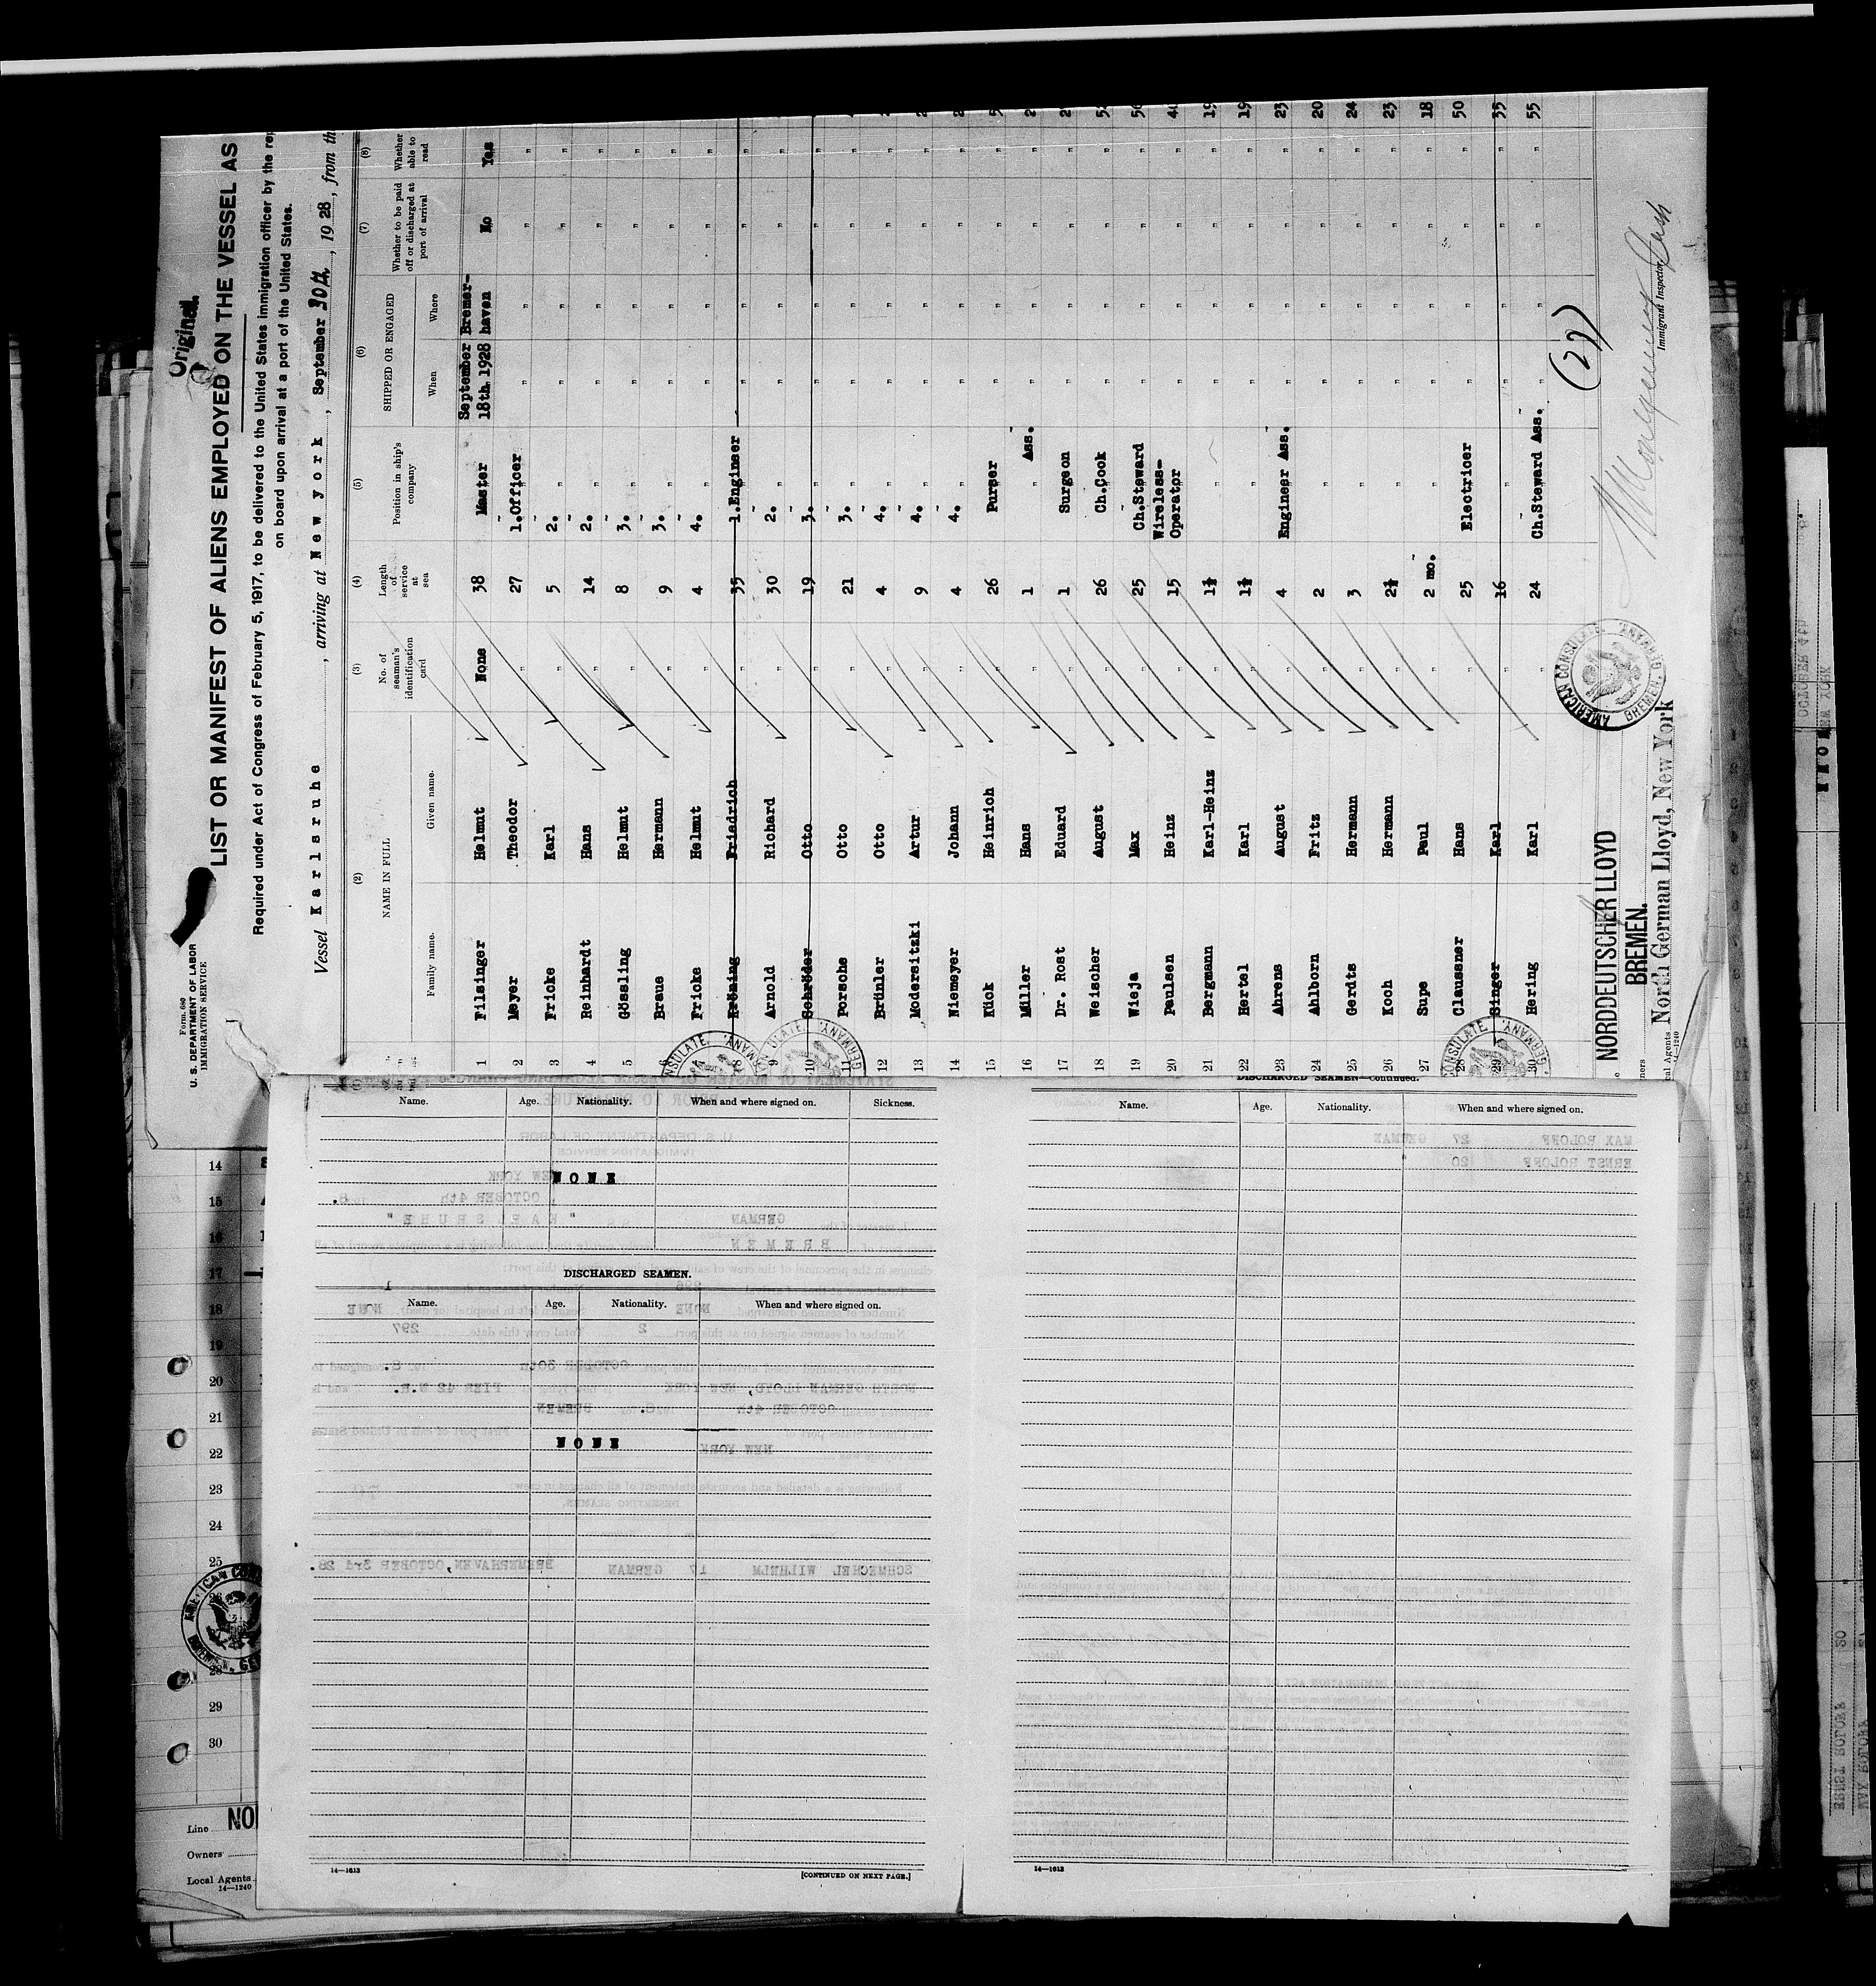 Original.
Form 680
U. S. DEPARTMENT OF LABOR
IMMIGRATION SERVICE
LIST OR MANIFEST OF ALIENS EMPLOYED ON THE VESSEL AS
Required under Act of Congress of February 5, 1917, to be delivered to the United States immigration officer by the
on board upon arrival at a port of the United States.
Vessel Karlsruhe, arriving at New York, September 30th, 1928, from th
(2) (3) (4) (5) (6) (7) (8)
NAME IN FULL No. of seaman's identification card Length of service at sea Position in ship's company SHIPPED OR ENGAGED Whether to be paid off or discharged at port of arrival Whether able to read
Family name. Given name. When Where
1 Filsinger Helmut None 38 Master September 18th 1928 Bremer-haven No Yes
2 Meyer Theodor " 27 1.Officer " " " "
3 Fricke Karl " 5 2. " " " " "
4 Reinhardt Hans " 14 2. " " " " "
5 Gössling Helmut " 8 3. " " " " "
6 Braue Hermann " 9 3. " " " " "
7 Fricke Helmut " 4 4. " " " " "
8 Kröning Friedrich " 35 1.Engineer " " " "
9 Arnold Richard " 30 2. " " " " "
10 Schröder Otto " 19 3. " " " " "
11 Porsche Otto " 21 3. " " " " "
12 Brünler Otto " 4 4. " " " " "
13 Modersitzki Artur " 9 4. " " " " "
14 Niemeyer Johann " 4 4. " " " " "
15 Kück Heinrich " 26 Purser " " " "
16 Müller Hans " 1 " Ass. " " " "
17 Dr. Rost Eduard " 1 Surgeon " " " "
18 Weischer August " 26 Ch.Cook " " " "
19 Wieja Max " 25 Ch.Steward " " " "
20 Paulsen Heinz " 15 Wireless-Operator " " " "
21 Bergmann Karl-Heinz " 1½ " " " " "
22 Hertel Karl " 1½ " " " " "
23 Ahrens August " 4 Engineer Ass. " " " " 23
24 Ahlborn Fritz " 2 " " " " " 20
25 Gerdts Hermann " 3 " " " " " 24
26 Koch Hermann " 2½ " " " " " 23
27 Supe Paul " 2 mo. " " " " " 18
28 Claussner Hans " 25 Electricer " " " " 50
29 Singer Karl " 16 " " " " " 35
30 Hering Karl " 24 Ch.Steward Ass. " " " " 55
(27)
NORDDEUTSCHER LLOYD
BREMEN.
North German Lloyd, New York
Immigrant Inspector
AMERICAN CONSULATE. BREMEN, GERMANY.
Name. Age. Nationality. When and where signed on. Sickness.
NONE
DISCHARGED SEAMEN.
Name. Age. Nationality. When and where signed on.
NONE
14—1613
[CONTINUED ON NEXT PAGE.]
DISCHARGED SEAMEN—Continued.
Name. Age. Nationality. When and where signed on.
14—1613
14
15
16
17
18
19
20
21
22
23
24
25
26
28
29
30
Line
Owners
Local Agents
14—1240